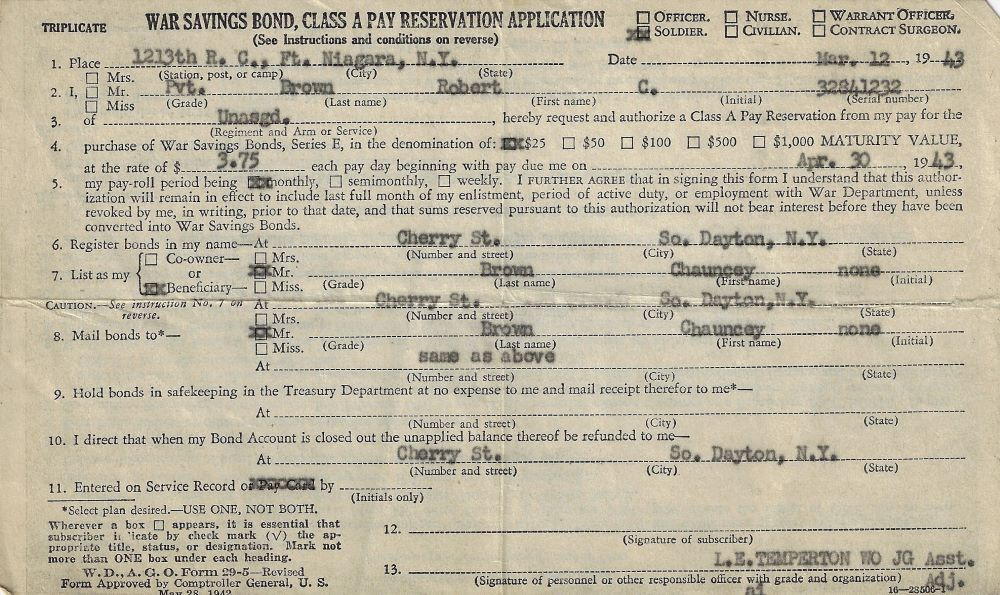 TRIPLICATE
WAR SAVINGS BOND, CLASS A PAY RESERVATION APPLICATION
(See Instructions and conditions on reverse)
☐ OFFICER. ☐ NURSE. ☐ WARRANT OFFICER.
☒ SOLDIER. ☐ CIVILIAN. ☐ CONTRACT SURGEON.
1. Place 1213th R. C., Ft. Niagara, N.Y. Date Mar. 12, 1943
(Station, post, or camp) (City) (State)
2. I, ☐ Mrs. ☐ Mr. ☐ Miss Pvt. Brown Robert C. 32841232
(Grade) (Last name) (First name) (Initial) (Serial number)
3. of Unasgd., hereby request and authorize a Class A Pay Reservation from my pay for the
(Regiment and Arm or Service)
4. purchase of War Savings Bonds, Series E, in the denomination of: ☒ $25 ☐ $50 ☐ $100 ☐ $500 ☐ $1,000 MATURITY VALUE,
at the rate of $ 3.75 each pay day beginning with pay due me on Apr. 30, 1943,
5. my pay-roll period being ☒ monthly, ☐ semimonthly, ☐ weekly. I FURTHER AGREE that in signing this form I understand that this author-
ization will remain in effect to include last full month of my enlistment, period of active duty, or employment with War Department, unless
revoked by me, in writing, prior to that date, and that sums reserved pursuant to this authorization will not bear interest before they have been
converted into War Savings Bonds.
6. Register bonds in my name—At Cherry St. So. Dayton, N.Y.
(Number and street) (City) (State)
7. List as my ☐ Co-owner— or ☒ Beneficiary— ☐ Mrs. ☒ Mr. ☐ Miss. Brown Chauncey none
(Grade) (Last name) (First name) (Initial)
CAUTION.—See instruction No. 7 on reverse.
At Cherry St. So. Dayton, N.Y.
(Number and street) (City) (State)
8. Mail bonds to*— ☐ Mrs. ☒ Mr. ☐ Miss. Brown Chauncey none
(Grade) (Last name) (First name) (Initial)
At same as above
(Number and street) (City) (State)
9. Hold bonds in safekeeping in the Treasury Department at no expense to me and mail receipt therefor to me*—
At
(Number and street) (City) (State)
10. I direct that when my Bond Account is closed out the unapplied balance thereof be refunded to me—
At Cherry St. So. Dayton, N.Y.
(Number and street) (City) (State)
11. Entered on Service Record or Pay Card by
(Initials only)
*Select plan desired.—USE ONE, NOT BOTH.
Wherever a box ☐ appears, it is essential that
subscriber indicate by check mark (√) the ap-
propriate title, status, or designation. Mark not
more than ONE box under each heading.
W. D., A. G. O. Form 29-5—Revised
Form Approved by Comptroller General, U. S.
May 28, 1942
12.
(Signature of subscriber)
13. L.E.TEMPERTON WO JG Asst.
(Signature of personnel or other responsible officer with grade and organization) Adj.
aj 16—28506-1